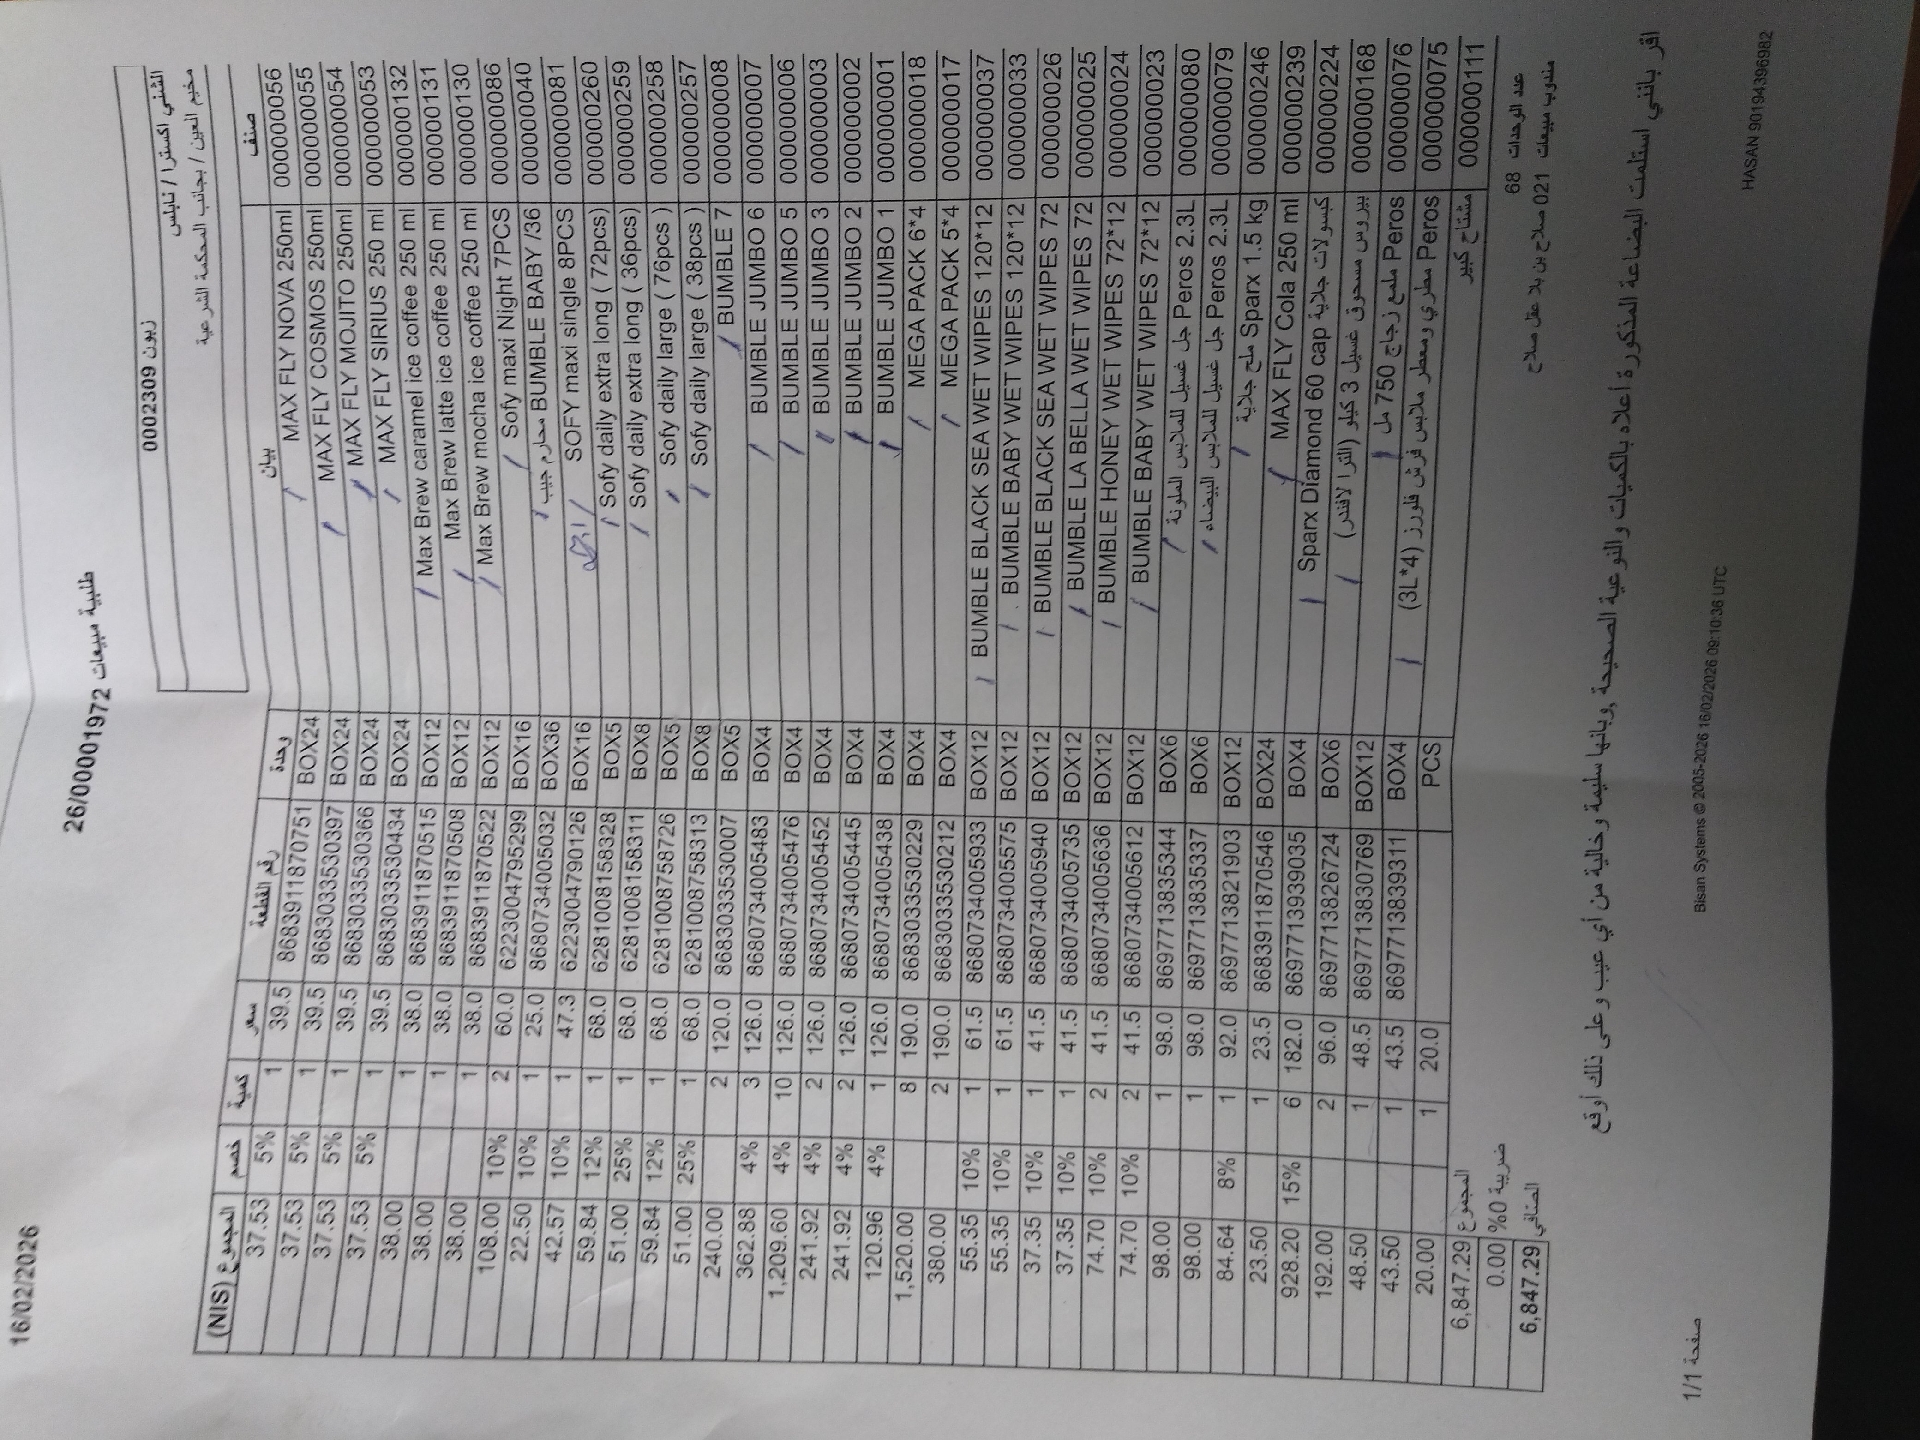 16/02/2026
طلبية مبيعات 26/000001972
زبون 0002309
الشني اكسترا / نابلس
مخيم العين / بجانب المحكمة الشرعية
صنف بيان وحدة رقم القطعة سعر كمية خصم المجموع (NIS)
0000000056 MAX FLY NOVA 250ml BOX24 8683911870751 39.5 1 5% 37.53
0000000055 MAX FLY COSMOS 250ml BOX24 8683033530397 39.5 1 5% 37.53
0000000054 MAX FLY MOJITO 250ml BOX24 8683033530366 39.5 1 5% 37.53
0000000053 MAX FLY SIRIUS 250 ml BOX24 8683033530434 39.5 1 5% 37.53
0000000132 Max Brew caramel ice coffee 250 ml BOX12 8683911870515 38.0 1 38.00
0000000131 Max Brew latte ice coffee 250 ml BOX12 8683911870508 38.0 1 38.00
0000000130 Max Brew mocha ice coffee 250 ml BOX12 8683911870522 38.0 1 38.00
0000000086 Sofy maxi Night 7PCS BOX16 6223004795299 60.0 2 10% 108.00
0000000040 محارم جيب BUMBLE BABY /36 BOX36 8680734005032 25.0 1 10% 22.50
0000000081 SOFY maxi single 8PCS BOX16 6223004790126 47.3 1 10% 42.57
0000000260 Sofy daily extra long ( 72pcs) BOX5 6281008158328 68.0 1 12% 59.84
0000000259 Sofy daily extra long ( 36pcs) BOX8 6281008158311 68.0 1 25% 51.00
0000000258 Sofy daily large ( 76pcs ) BOX5 6281008758726 68.0 1 12% 59.84
0000000257 Sofy daily large ( 38pcs ) BOX8 6281008758313 68.0 1 25% 51.00
0000000008 BUMBLE 7 BOX5 8683033530007 120.0 2 240.00
0000000007 BUMBLE JUMBO 6 BOX4 8680734005483 126.0 3 4% 362.88
0000000006 BUMBLE JUMBO 5 BOX4 8680734005476 126.0 10 4% 1,209.60
0000000003 BUMBLE JUMBO 3 BOX4 8680734005452 126.0 2 4% 241.92
0000000002 BUMBLE JUMBO 2 BOX4 8680734005445 126.0 2 4% 241.92
0000000001 BUMBLE JUMBO 1 BOX4 8680734005438 126.0 1 4% 120.96
0000000018 MEGA PACK 6*4 BOX4 8683033530229 190.0 8 1,520.00
0000000017 MEGA PACK 5*4 BOX4 8683033530212 190.0 2 380.00
0000000037 BUMBLE BLACK SEA WET WIPES 120*12 BOX12 8680734005933 61.5 1 10% 55.35
0000000033 BUMBLE BABY WET WIPES 120*12 BOX12 8680734005575 61.5 1 10% 55.35
0000000026 BUMBLE BLACK SEA WET WIPES 72 BOX12 8680734005940 41.5 1 10% 37.35
0000000025 BUMBLE LA BELLA WET WIPES 72 BOX12 8680734005735 41.5 1 10% 37.35
0000000024 BUMBLE HONEY WET WIPES 72*12 BOX12 8680734005636 41.5 2 10% 74.70
0000000023 BUMBLE BABY WET WIPES 72*12 BOX12 8680734005612 41.5 2 10% 74.70
0000000080 جل غسيل للملابس الملونة Peros 2.3L BOX6 8697713835344 98.0 1 98.00
0000000079 جل غسيل للملابس البيضاء Peros 2.3L BOX6 8697713835337 98.0 1 98.00
0000000246 ملح جلاية Sparx 1.5 kg BOX12 8697713821903 92.0 1 8% 84.64
0000000239 MAX FLY Cola 250 ml BOX24 8683911870546 23.5 1 23.50
0000000224 كبسولات جلاية Sparx Diamond 60 cap BOX4 8697713939035 182.0 6 15% 928.20
0000000168 بيروس مسحوق غسيل 3 كيلو (الترا لافندر) BOX6 8697713826724 96.0 2 192.00
0000000076 ملمع زجاج 750 مل Peros BOX12 8697713830769 48.5 1 48.50
0000000075 مطري ومعطر ملابس فرش فلورز Peros (3L*4) BOX4 8697713839311 43.5 1 43.50
0000000111 مشتاح كبير PCS 20.0 1 20.00
عدد الوحدات 68 المجموع 6,847.29
مندوب مبيعات 021 صلاح بن بلا عقل صلاح ضريبة 0% 0.00
الصافي 6,847.29
اقر بانني استلمت البضاعة المذكورة أعلاه بالكميات والنوعية الصحيحة وبانها سليمة وخالية من أي عيب وعلى ذلك أوقع
HASAN 90194396982
Bisan Systems © 2005-2026 16/02/2026 09:10:36 UTC
صفحة 1/1